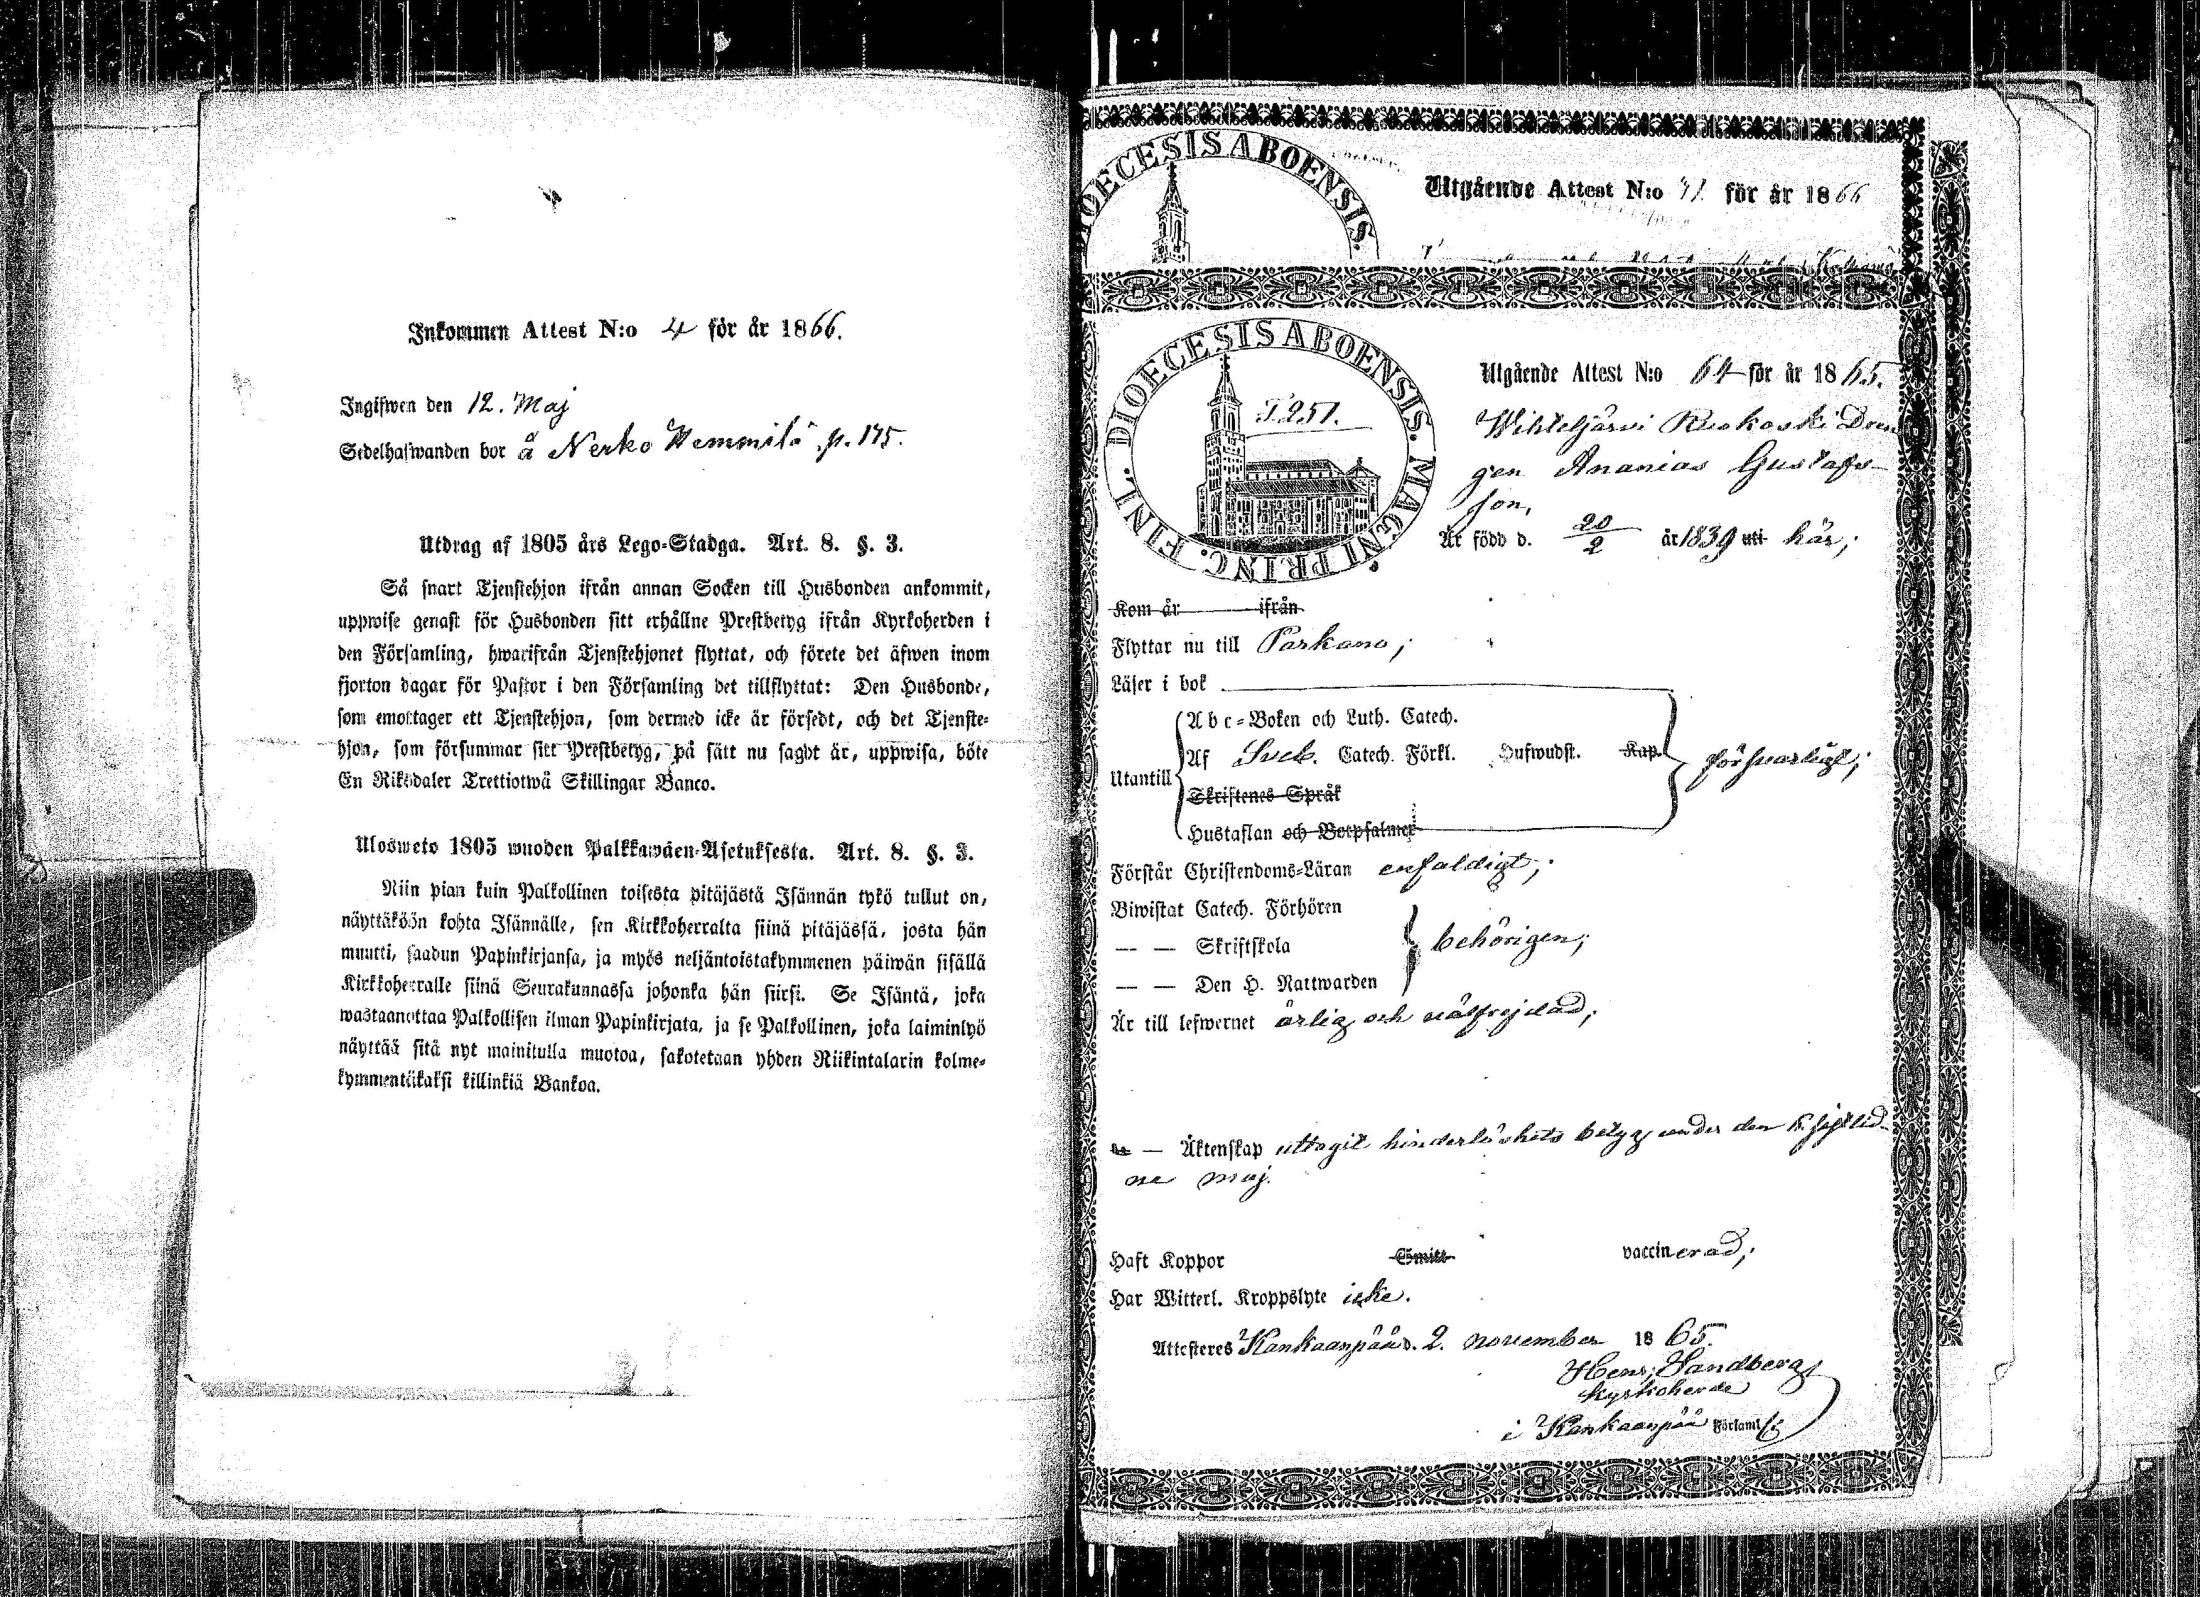 Inkommen Attest N:o 4 för år 1866.
Ingifwen den 12. Maj
Sedelhafwanden bor å Nerko Hemmilä p. 175.
Utdrag af 1805 års Lego-Stadga. Art. 8. §. 3.
Så snart Tjenstehjon ifrån annan Socken till Husbonden ankommit,
uppwise genast för Husbonden sitt erhållne Prestbetyg ifrån Kyrkoherden i
den Församling, hwarifrån Tjenstehjonet flyttat, och förete det äfwen inom
fjorton dagar för Pastor i den Församling det tillflyttat: Den Husbonde,
som emottager ett Tjenstehjon, som dermed icke är försedt, och det Tjenste-
hjon, som försummar sitt Prestbetyg, på sätt nu sagdt är, uppwisa, böte
En Riksdaler Trettiotwå Skillingar Banco.
Ulosweto 1805 wuoden Palkkawäen-Asetuksesta. Art. 8. §. 3.
Niin pian kuin Palkollinen toisesta pitäjästä Isännän tykö tullut on,
näyttäköön kohta Isännälle, sen Kirkkoherralta siinä pitäjässä, josta hän
muutti, saadun Papinkirjansa, ja myös neljäntoistakymmenen päiwän sisällä
Kirkkoherralle siinä Seurakunnassa johonka hän siirsi. Se Isäntä, joka
wastaanottaa Palkollisen ilman Papinkirjata, ja se Palkollinen, joka laiminlyö
näyttää sitä nyt mainitulla muotoa, sakotetaan yhden Riikintalarin kolme-
kymmentäkaksi killinkiä Bankoa.
DIOECESIS ABOENSIS.
Utgående Attest N:o 71. för år 1866
DIOECESIS ABOENSIS. MAGNI PRINC. FINL.
T.251.
Utgående Attest N:o 64 för år 1865.
Wihteljärvi Ruokoski Dren
gen Ananias Gustafs-
son,
Är född d. 20/2 år 1839 uti här;
Kom år ifrån
Flyttar nu till Parkano;
Läser i bok
Abc-Boken och Luth. Catech.
Utantill Af Sveb. Catech. Förkl. Hufwudst. Kap. försvarligt;
Skriftenes Språk
Hustaflan och Botpsalmer
Förstår Christendoms-Läran enfaldigt;
Biwistat Catech. Förhören
— — Skriftskola behörigen;
— — Den H. Nattwarden
Är till lefwernet ärlig och välfrejdad;
— Äktenskap uttagit hinderlöshets betyg under den sistlid-
ne maj.
Haft Koppor Smitt vaccinerad;
Har Witterl. Kroppslyte icke.
Attesteras Kankaanpää d. 2. november 1865.
Henr. Sandberg
kyrkoherde
i Kankaanpää Församl.